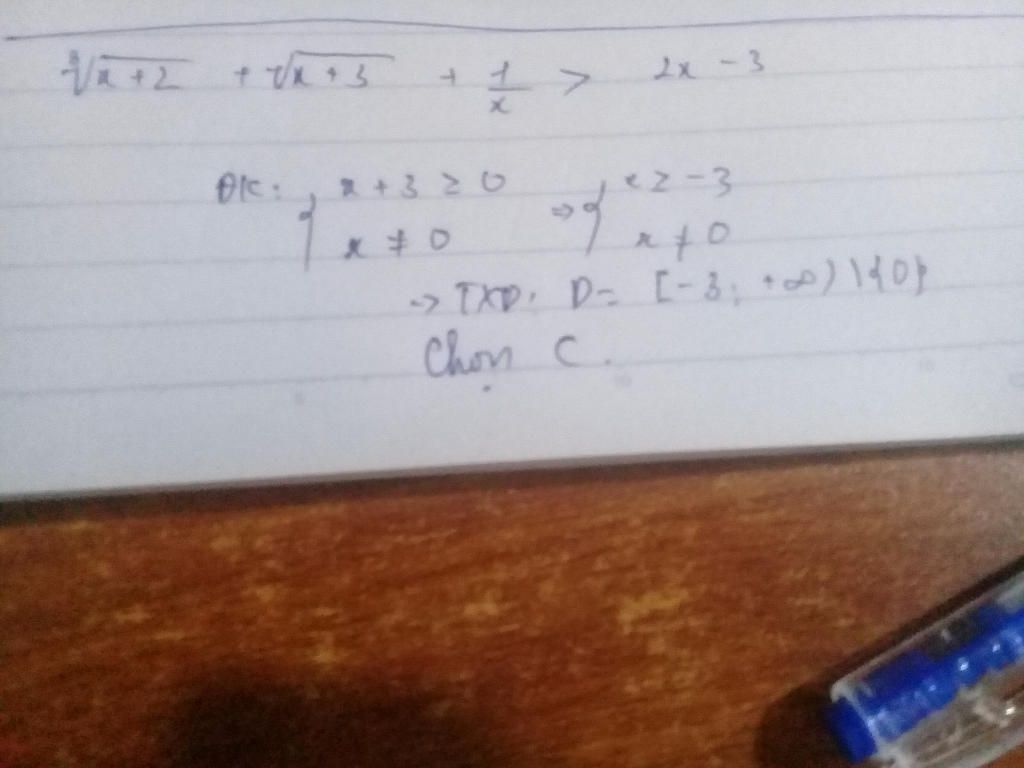 ∛(x+2) + √(x+3) + 1/x > 2x - 3
ĐK: { x + 3 ≥ 0 ⇒ { x ≥ -3
x ≠ 0 x ≠ 0
→ TXĐ: D = [-3; +∞) \ {0}
Chọn C.